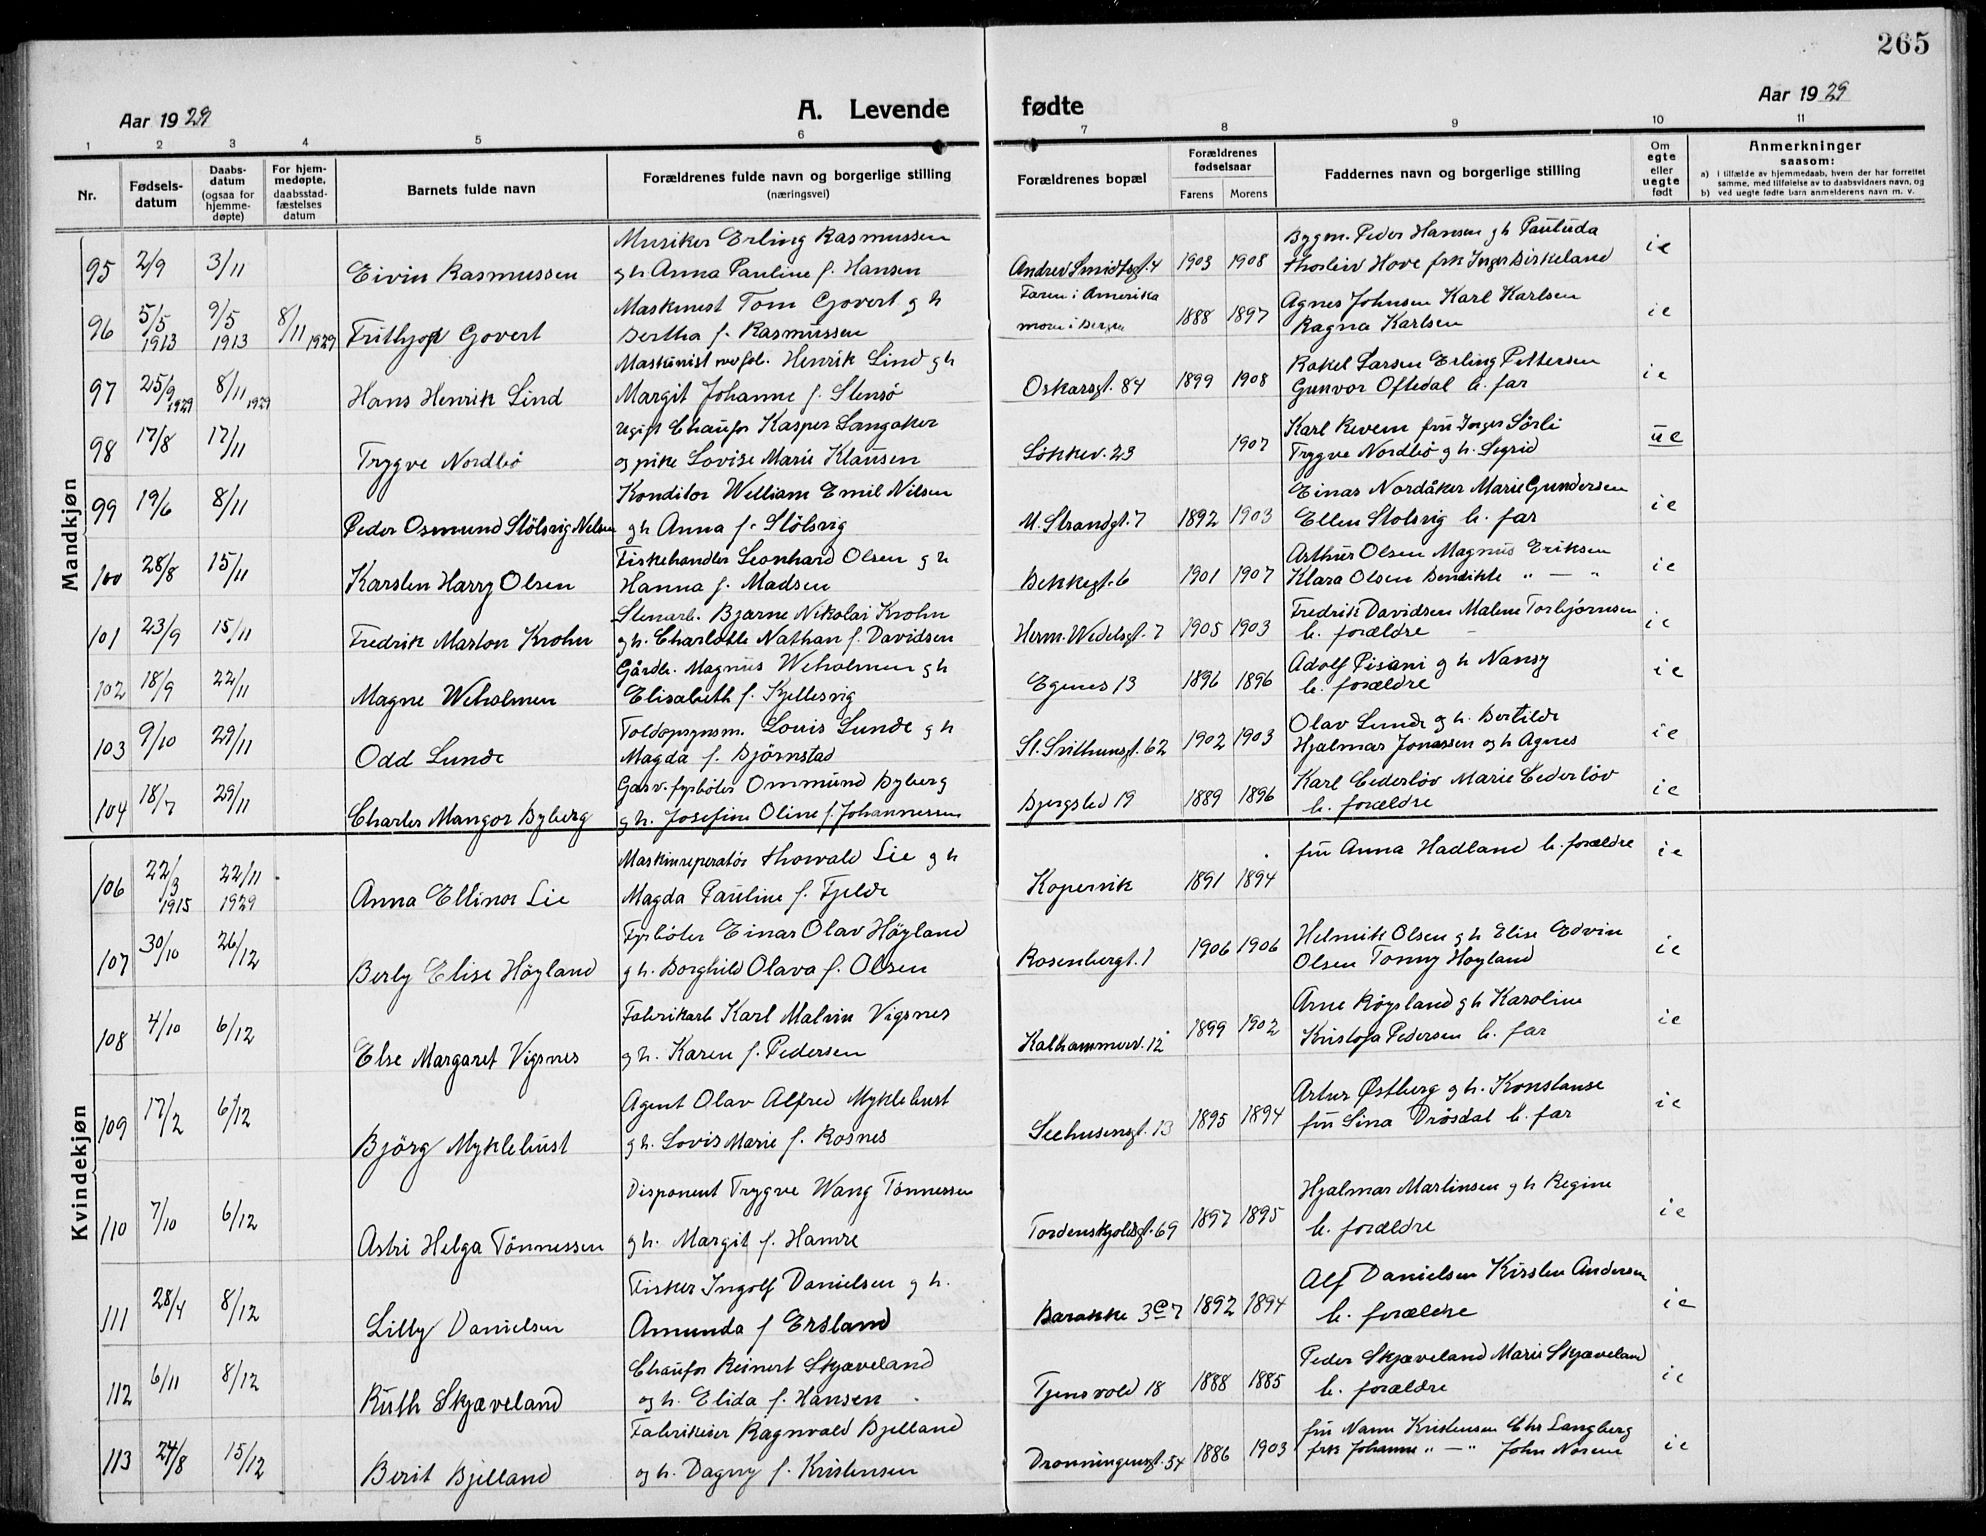 265
Aar 1929 A. Levende fødte Aar 1929
1 2 3 4 5 6 7 8 9 10 11
Nr. Fødsels-datum Daabs-datum (ogsaa for hjemme-døpte) For hjem-medøpte, daabsstad-fæstelses datum Barnets fulde navn Forældrenes fulde navn og borgerlige stilling (næringsvei) Forældrenes bopæl Forældrenes fødselsaar Farens Morens Faddernes navn og borgerlige stilling Om egte eller uegte født Anmerkninger saasom:
a) i tilfælde av hjemmedaab, hvem der har forrettet samme, med tilføielse av to daabsvidners navn, og
b) ved uegte fødte barn anmelderens navn m. v.
Mandkjøn
Musiker Erling Rasmussen Bygm. Peder Hansen gh
95 2/9 3/11 Eivin Rasmussen gh Anna Pauline f. Hansen 4 1903 1908 Hove frk Inger Birkeland ie
Tom Govert gh Faren i Amerika Agnes Johnsen Karl Karlsen
96 5/5 1913 9/5 1913 8/11 1929 Govert Bertha f. Rasmussen moren i Bergen 1888 1897 Ragna Karlsen ie
Maskinist Henrik Lind gh Rakel Larsen Erling Pettersen
97 25/9 1929 8/11 1929 Hans Henrik Lind Margit Johanne f. Stensö Oskarsgt. 84 1899 1908 Gunvor Oftedal b. far ie
Ugift Chauför Kasper Langaker Karl Revem frú Inger Sörli
98 17/8 17/11 Trygve Nordbö og pike Lovise Marie Klausen Lökkev. 23 1907 Trygve Nordbö gh. Sigrid ue
Konditor William Emil Nilsen Einar Nordåker Marie Gundersen
99 19/6 8/11 Peder Osmund Stölsvig Nilsen gh Anna f. Stölsvig N. Strandgt. 7 1892 1903 Ellen Stolsvig b. far ie
Fiskehandler Leonhard Olsen gh Arthur Olsen Magnus Eriksen
100 28/8 15/11 Karsten Harry Olsen Hanna f. Madsen Bekkegt. 6 1901 1907 Klara Olsen Bendikte " — " ie
Stenarb. Bjarne Nikolai Krohn Fredrik Davidsen Malene Torbjörnsen
101 23/9 15/11 Fredrik Marton Krohn gh. Charlotte Nathan f. Davidsen Herm. Wedelsgt. 7 1905 1903 b. forældre ie
Gårdb. Magnus Weholmen gh Adolf Pisani gh Nansy
102 18/9 22/11 Magne Weholmen Elisabeth f. Kjellesvig Egenes 13 1896 1896 b. forældre ie
Toldopsynsm. Louis Lunde gh Olav Lunde gh. Bertilde
103 9/10 29/11 Odd Lunde Magda f. Björnstad St. Svithunsgt. 62 1902 1903 Hjalmar Jonassen og h Agnes ie
Gasv. fyrböter Ommund Byberg Karl Cederlöv Marie Cederlöv
104 18/7 29/11 Charles Mangor Byberg gh. Josefine Oline f. Johannessen Bjergsted 19 1889 1896 b. forældre ie
Kvindekjøn
Maskinreperatör Thorvald Lie gh frú Anna Hadland b. forældre
106 22/3 1915 22/11 1929 Anna Ellinor Lie Magda Pauline f. Fjelde Kopervik 1891 1894 ie
Fyrböter Einar Olav Höyland Helmik Olsen gh Elise Edvin
107 30/10 26/12 Berly Elise Höyland gh. Borghild Olava f. Olsen Rosenbergt. 1 1906 1906 Olsen Tonny Höyland ie
Fabrikarb Karl Malvin Vigsnes Arne Röysland gh Karoline
108 4/10 6/12 Else Margaret Vigsnes gh. Karen f. Pedersen Kalhammerv. 12 1899 1902 Kristofa Pedersen b. far ie
Agent Olav Alfred Myklebust Artur Østberg gh. Konstanse
109 17/2 6/12 Björg Myklebust gh. Lovis Marie f. Rosnes Seehusensgt. 13 1895 1894 frú Sina Drösdal b. far ie
Disponent Trygve Wang Tönnessen Hjalmar Martinsen gh Regine
110 7/10 6/12 Astri Helga Tönnessen gh. Margit f. Hamre Tordenskjoldsgt. 69 1897 1895 b. forældre ie
Fisker Ingolf Danielsen gh. Alf Danielsen Kirsten Andersen
111 28/4 8/12 Lilly Danielsen Amunda f Ersland Barakke 3 C 7 1892 1894 b. forældre ie
Chauför Reinert Skjæveland Peder Skjæveland Marie Skjæveland
112 6/11 8/12 Ruth Skjæveland og h. Elida f. Hansen Tjensvold 18 1888 1885 b. forældre ie
Fabrikeier Ragnvald Bjelland frú Nann Kristensen Chr Langberg
113 24/8 15/12 Berit Bjelland og h. Dagny f. Kristensen Dronningensgt. 54 1886 1903 frk Johanne " — " John Norem ie